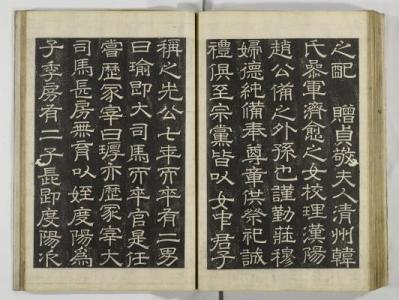 之配 贈貞敬夫人清州韓
氏參軍濟愈之女校理漢陽
趙公備之外孫也謹勤莊穆
婦德純備奉尊章供祭祀誠
禮俱至宗黨皆以女中君子
稱之先公七年而卒有二男
曰瑜即大司馬亦卒官是任
嘗歷冢宰曰亦歷冢宰大
司馬長房無育以姪度陽為
子季房有二子長即度陽次